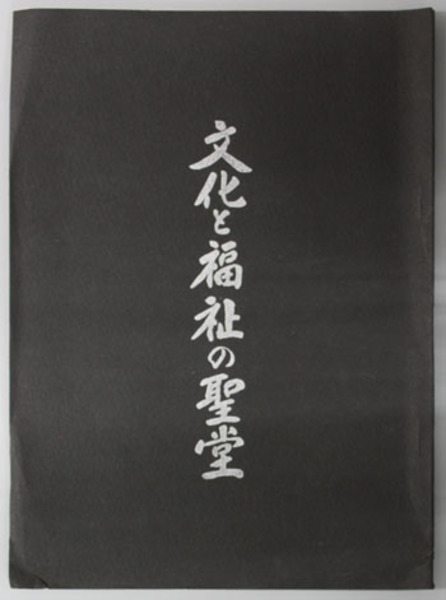 文化と福祉の聖堂